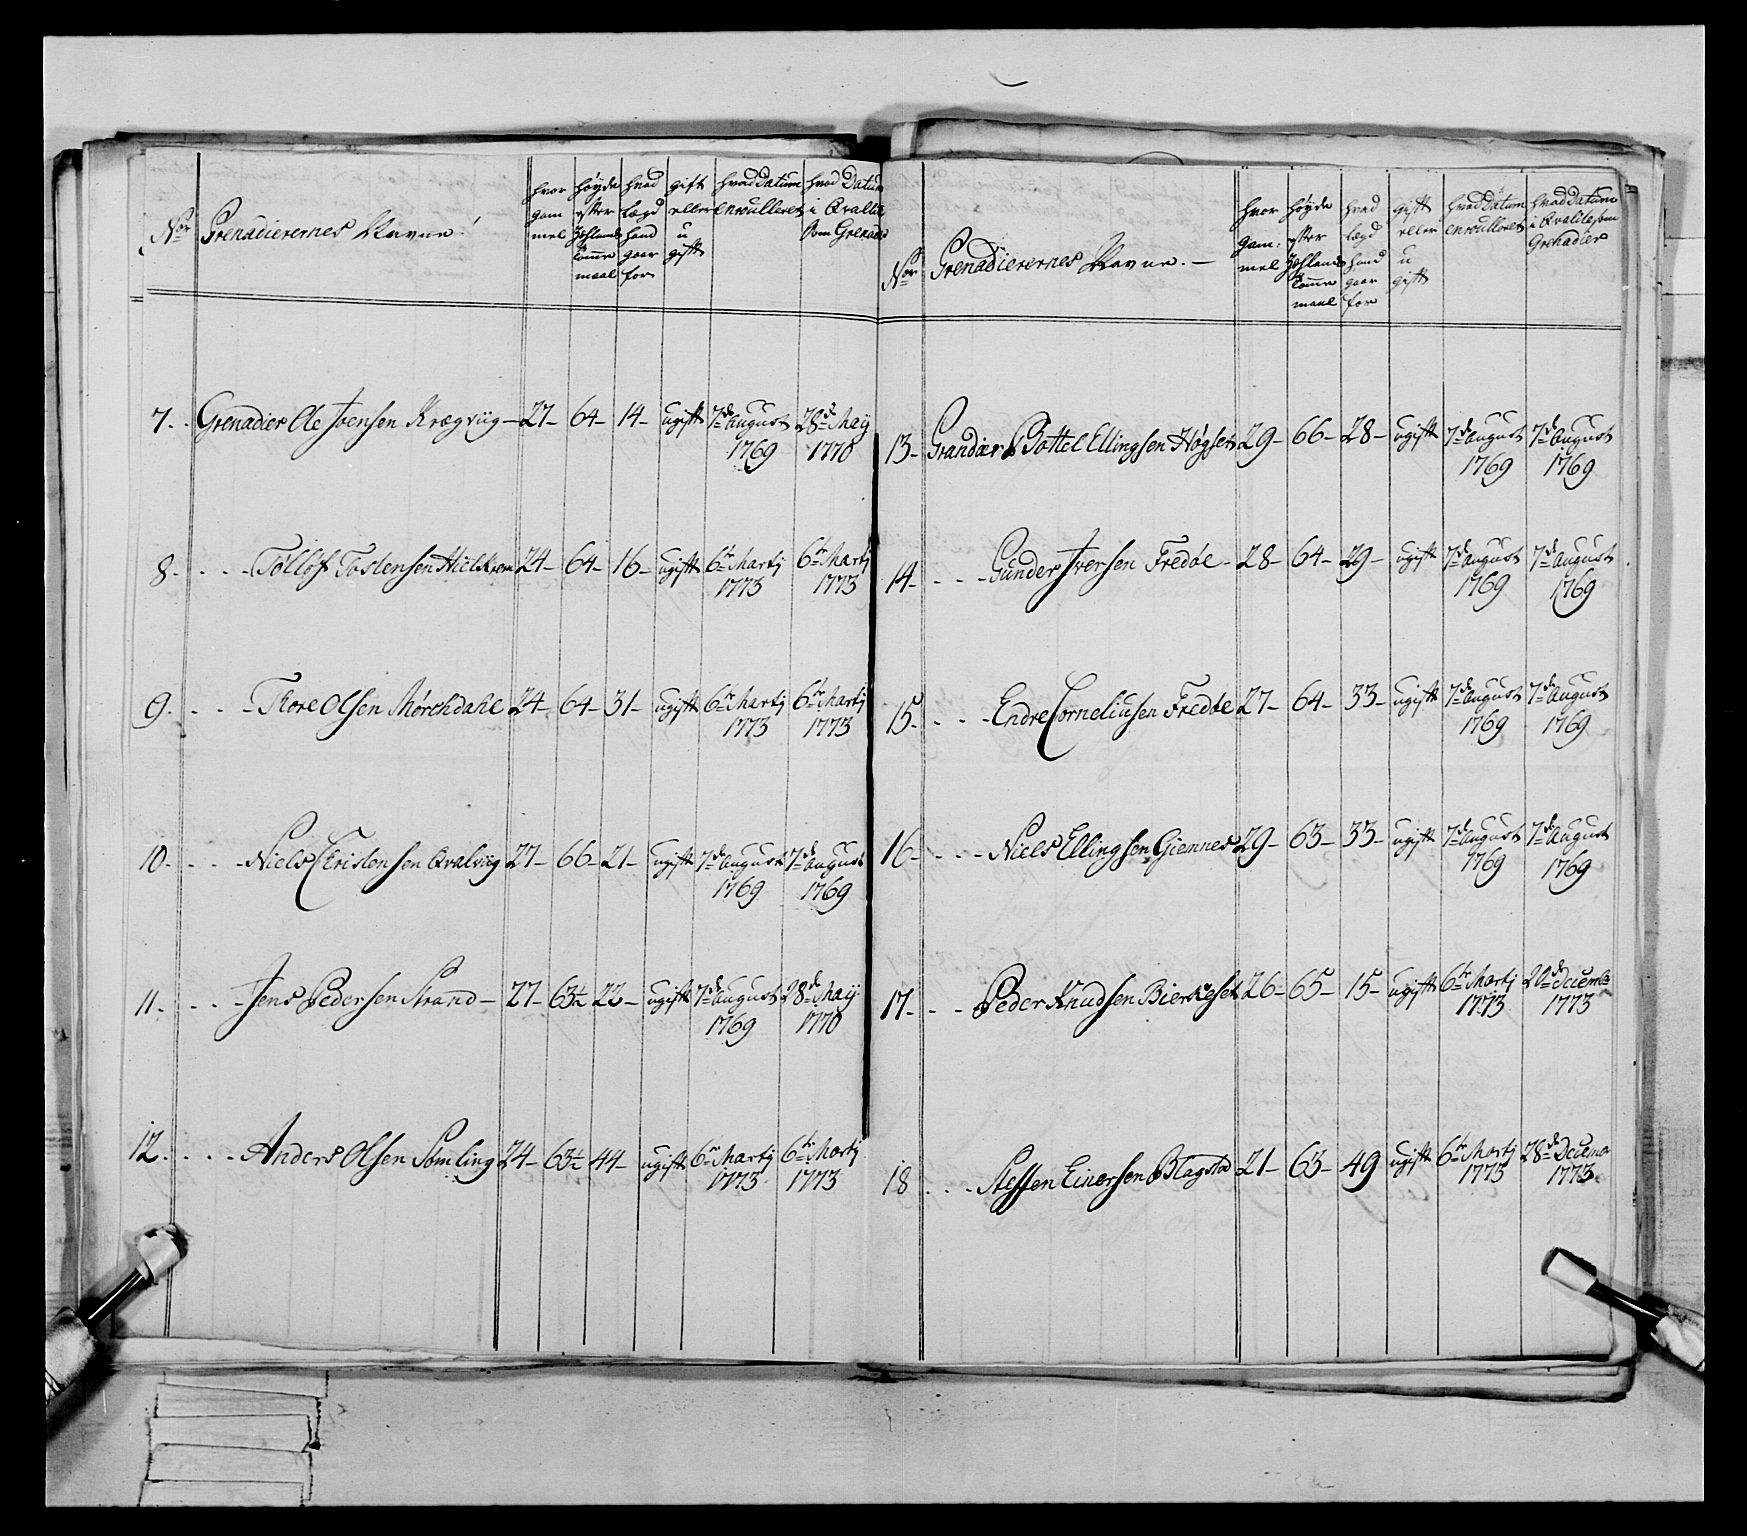 Nor Grenadierernes Navne. hvor gam mel høyde efter Sihlands Tomme maal hvad lægd hand gaar for gift eller u gift hvad Datum enroulleret hvad Datum i Qvalite som Grenadier
7. Grenadier Ole Joensen Krægviig 27 64 14 ugift 7de August 1769 28de Maÿ 1770
8. Tøllof Tostensen 24 64 16 ugift 6te Martij 1773 6te Martij 1773
9. Tore Olsen Mørchdahl 24 64 31 ugift 6te Martij 1773 6te Martij 1773
10. Niels Christensen Qvalviig 27 66 21 ugift 7de August 1769 7de August 1769
11. Jens Pedersen Strand 27 63½ 22 ugift 7de August 1769 28de Maÿ 1770
12. Anders Olsen Sømling 24 63½ 44 ugift 6te Martij 1773 6te Martij 1773
Nor Grenadierernes Navne. hvor gam: mel høyde efter Sihlands Tomme maal hvad lægd hand gaar for gift eller u gift hvad Datum enroulleret hvad Datum i Qvalite som Grenadier
13. Grandier Bottel Ellingsen Høgset 29 66 28 ugift 7de August 1769 7de August 1769
14. Gunder Iversen Fredøe 28 64 29 ugift 7de August 1769 7de August 1769
15. Endre Corneliusen Fredøe 27 64 33 ugift 7de August 1769 7de August 1769
16. Niels Ellingsen Giemnes 29 63 33 ugift 7de August 1769 7de August 1769
17. Peder Knudsen Bierkeset 26 65 15 ugift 6te Martij 1773 Decemb 1773
18. Steffen Einersen Blagstad 21 63 49 ugift 6te Martij 1773 28de Decemb 1773